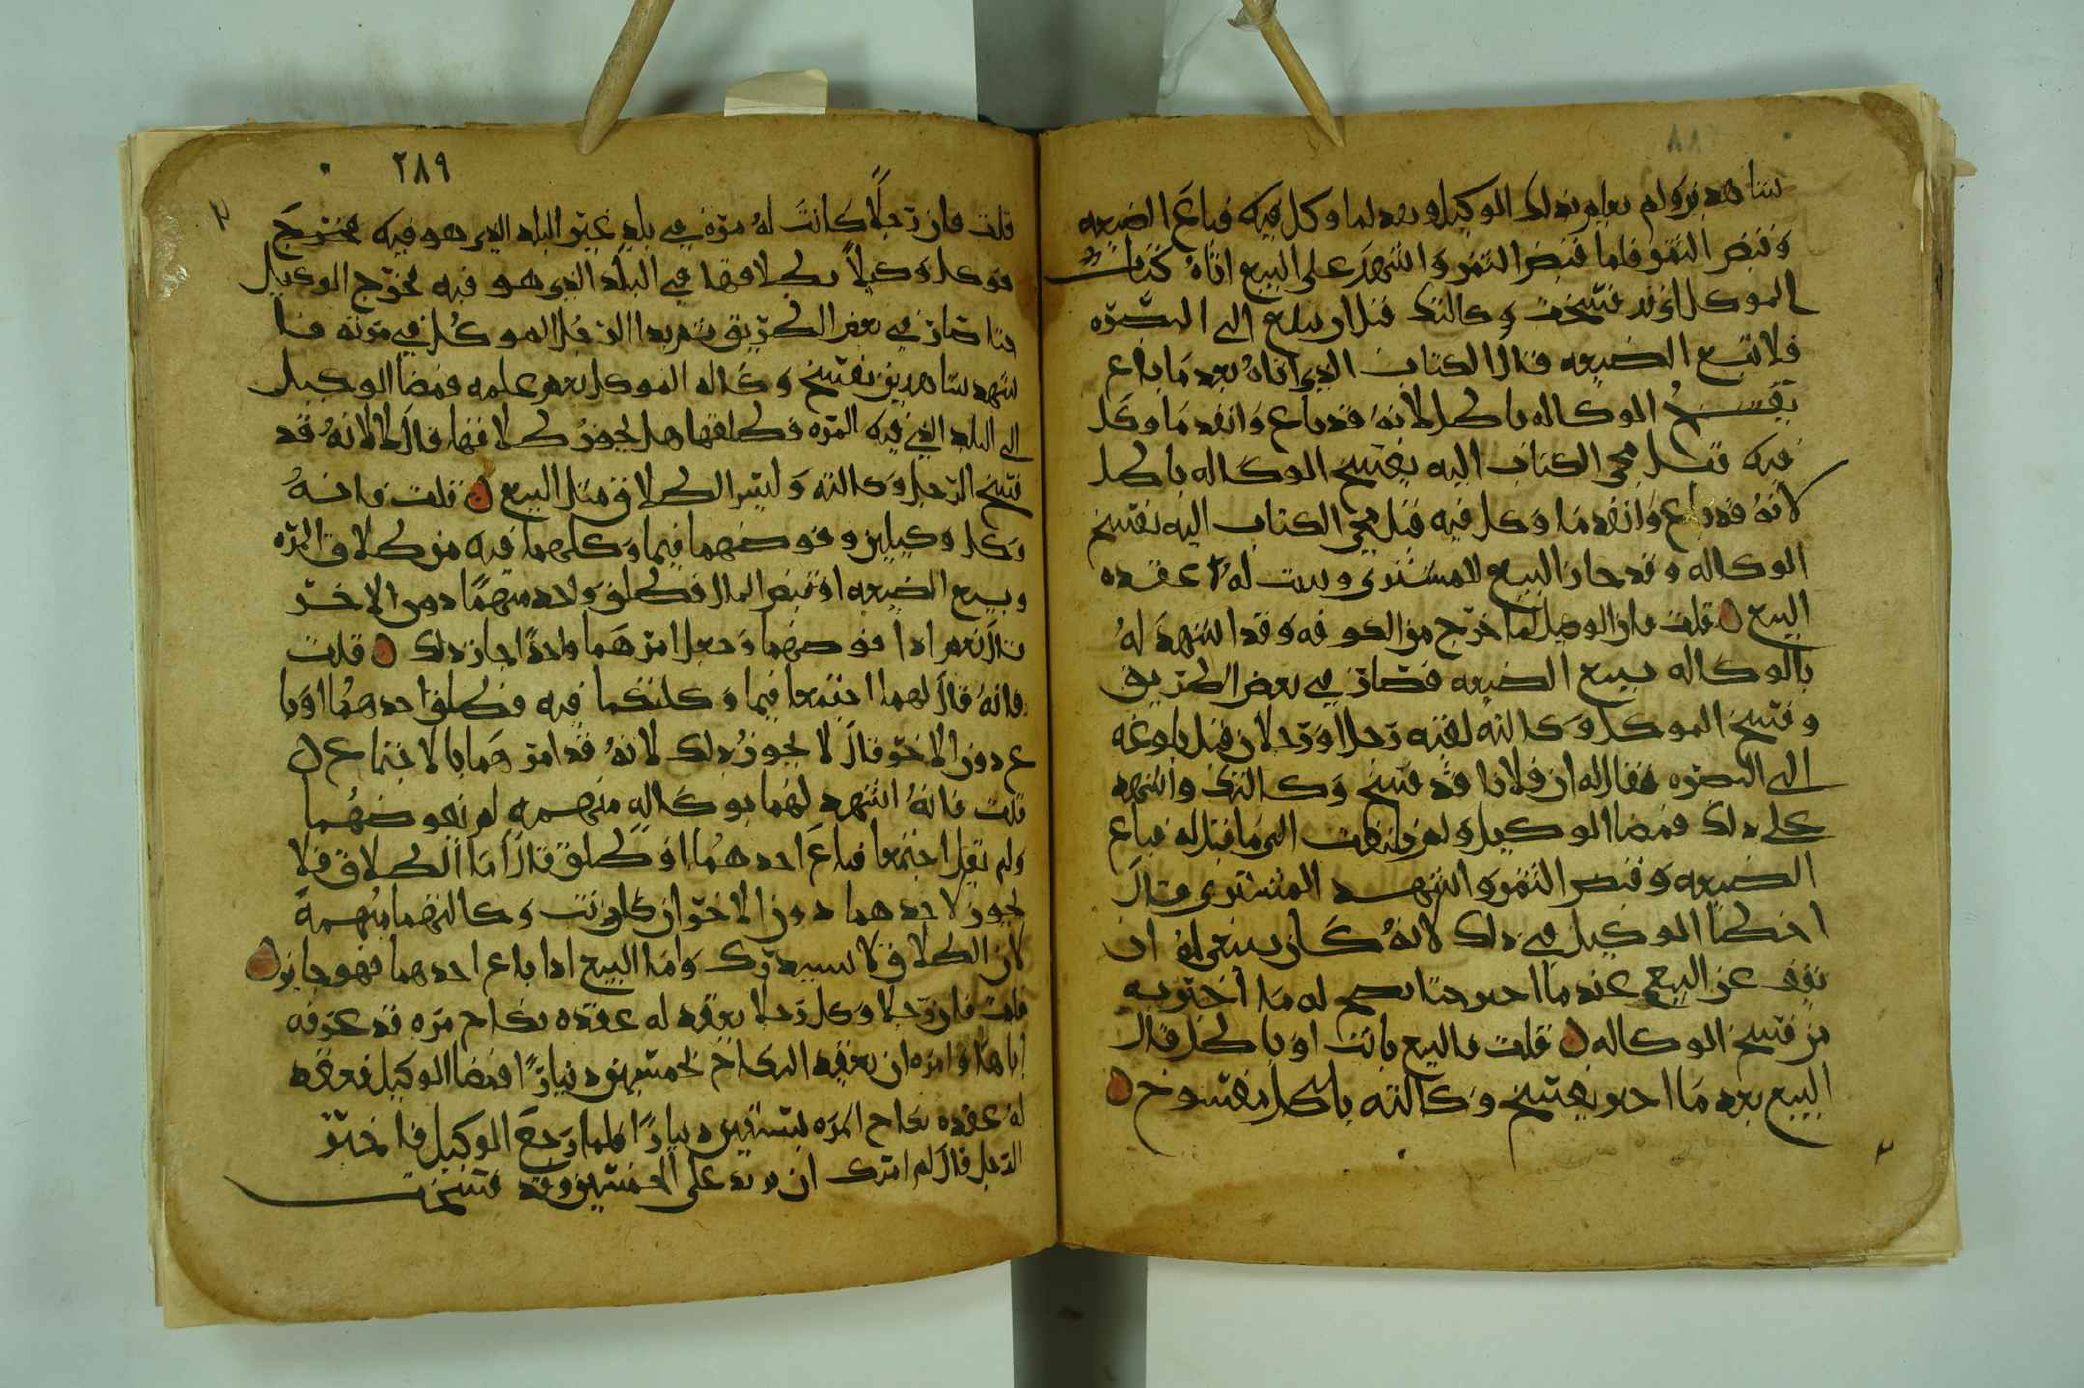 شاهدين ولم يعلم بذلك الوكيل وبعد لما وكل فيه فباع الضيعه
وقبض الثمن فلما قبض الثمن واشهد على البيع اتاه كتاب
الموكل اني قد فسخت وكالتك قبل ان تبلغ الى البصره
فلا تبع الضيعه قال الكتاب الذي اتاه بعد ما باع
يفسخ الوكاله باطل لانه قد باع وانفد ما وكل
فيه قبل مجي الكتاب اليه بفسخ الوكاله باطل
لانه قد باع وانفد ما وكل فيه قبل مجي الكتاب اليه بفسخ
الوكاله وقد جاز البيع للمشتري وثبت له عقده
البيع قلت فان الوكيل لما خرج من الكوفه وقد اشهد له
بالوكاله ببيع الضيعه فصار في بعض الطريق
وفسخ الموكل وكالته لقيه رجل او رجلان قبل بلوغه
الى البصره فقال له ان فلانا قد فسخ وكالتك واشهد
على ذلك فمضا الوكيل ولم يلتفت الى ما قيل له فباع
الضيعه وقبض الثمن واشهد المشتري قال
اخطا الوكيل في ذلك لانه كان ينبغي له ان
يقف عن البيع عند ما اخبر حتا يصح له ما اخبر به
من فسخ الوكاله قلت فالبيع ثابت او باطل قال
البيع بعد ما اخبر بفسخ وكالته باطل مفسوخ
٢٨٩
قلت فان رجلا كانت له مره في بلد غير البلد الذي هو فيه فخرج
فوكل وكيلا بطلاقها في البلد الذي هو فيه فخرج الوكيل
حتا صار في بعض الطريق ثم بدا للرجل الموكل في مرته فا
شهد شاهدين بفسخ وكاله الموكل بعد علمه فمضا الوكيل
الى البلد الذي فيه المره فطلقها هل يجوز طلاقها قال لا لانه قد
فسخ الرجل وكالته وليس الطلاق مثل البيع قلت فانه
وكل وكيلين وفوضهما فيما وكلهما فيه من طلاق المره
وبيع الضيعه او قبض المال فطلق واحد منهما دون الاخر
قال نعم اذا فوضهما وجعل امرهما واحدا جاز ذلك قلت
فانه قال لهما اجتمعا فيما وكلتكما فيه فطلق احدهما او با
ع دون الاخر قال لا يجوز ذلك لانه قد امرهما بالاجتماع
قلت فانه اشهد لهما بوكاله مبهمه لم يفوضهما
ولم يقل اجتمعا فباع احدهما او طلق قال اما الطلاق فلا
يجوز لاحدهما دون الاخر ان كانت وكالتهما مبهمة
لان الطلاق لا يستدرك واما البيع اذا باع احدهما فهو جايز
قلت فان رجلا وكل رجلا يعقد له عقده نكاح مره قد عرفه
اياها وامره ان يعقد النكاح بخمسين دينارا فمضا الوكيل فعقد
له عقده نكاح المره بستين دينارا فلما رجع الوكيل فاخبر
الرجل قال لم امرك ان تزيد على الخمسين وقد فسخت